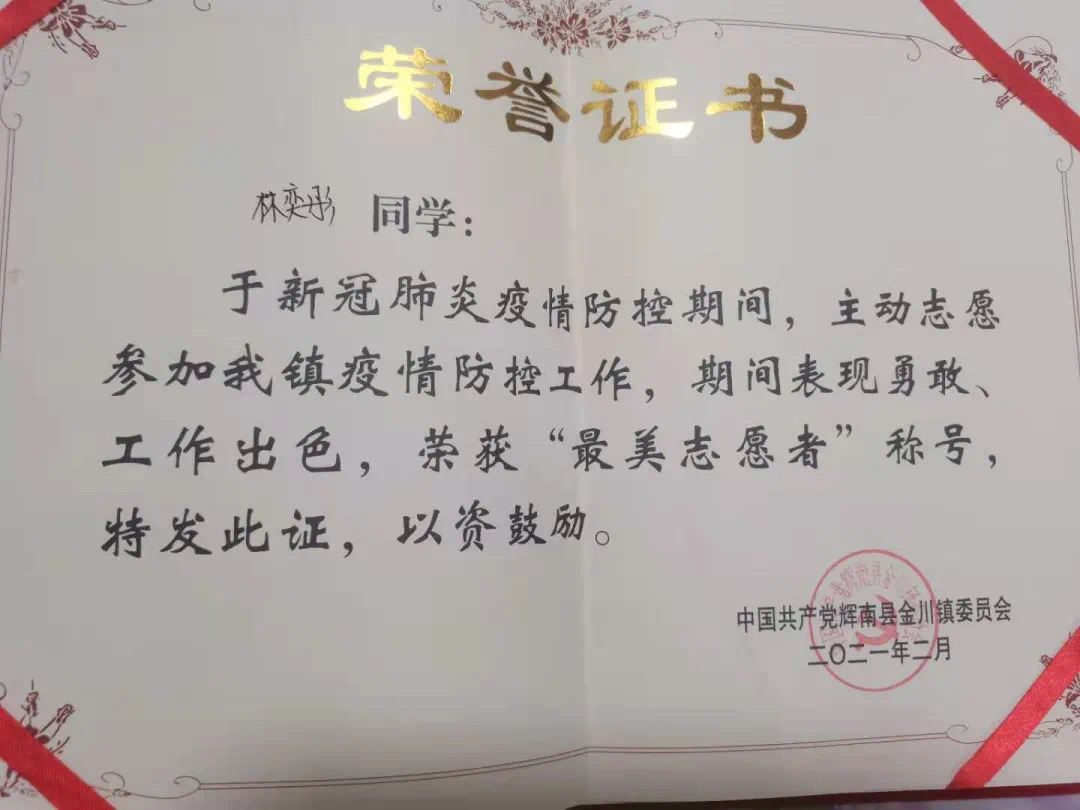 荣誉证书
林奕彤 同学：
于新冠肺炎疫情防控期间，主动志愿
参加我镇疫情防控工作，期间表现勇敢、
工作出色，荣获“最美志愿者”称号，
特发此证，以资鼓励。
中国共产党辉南县金川镇委员会
二〇二一年二月